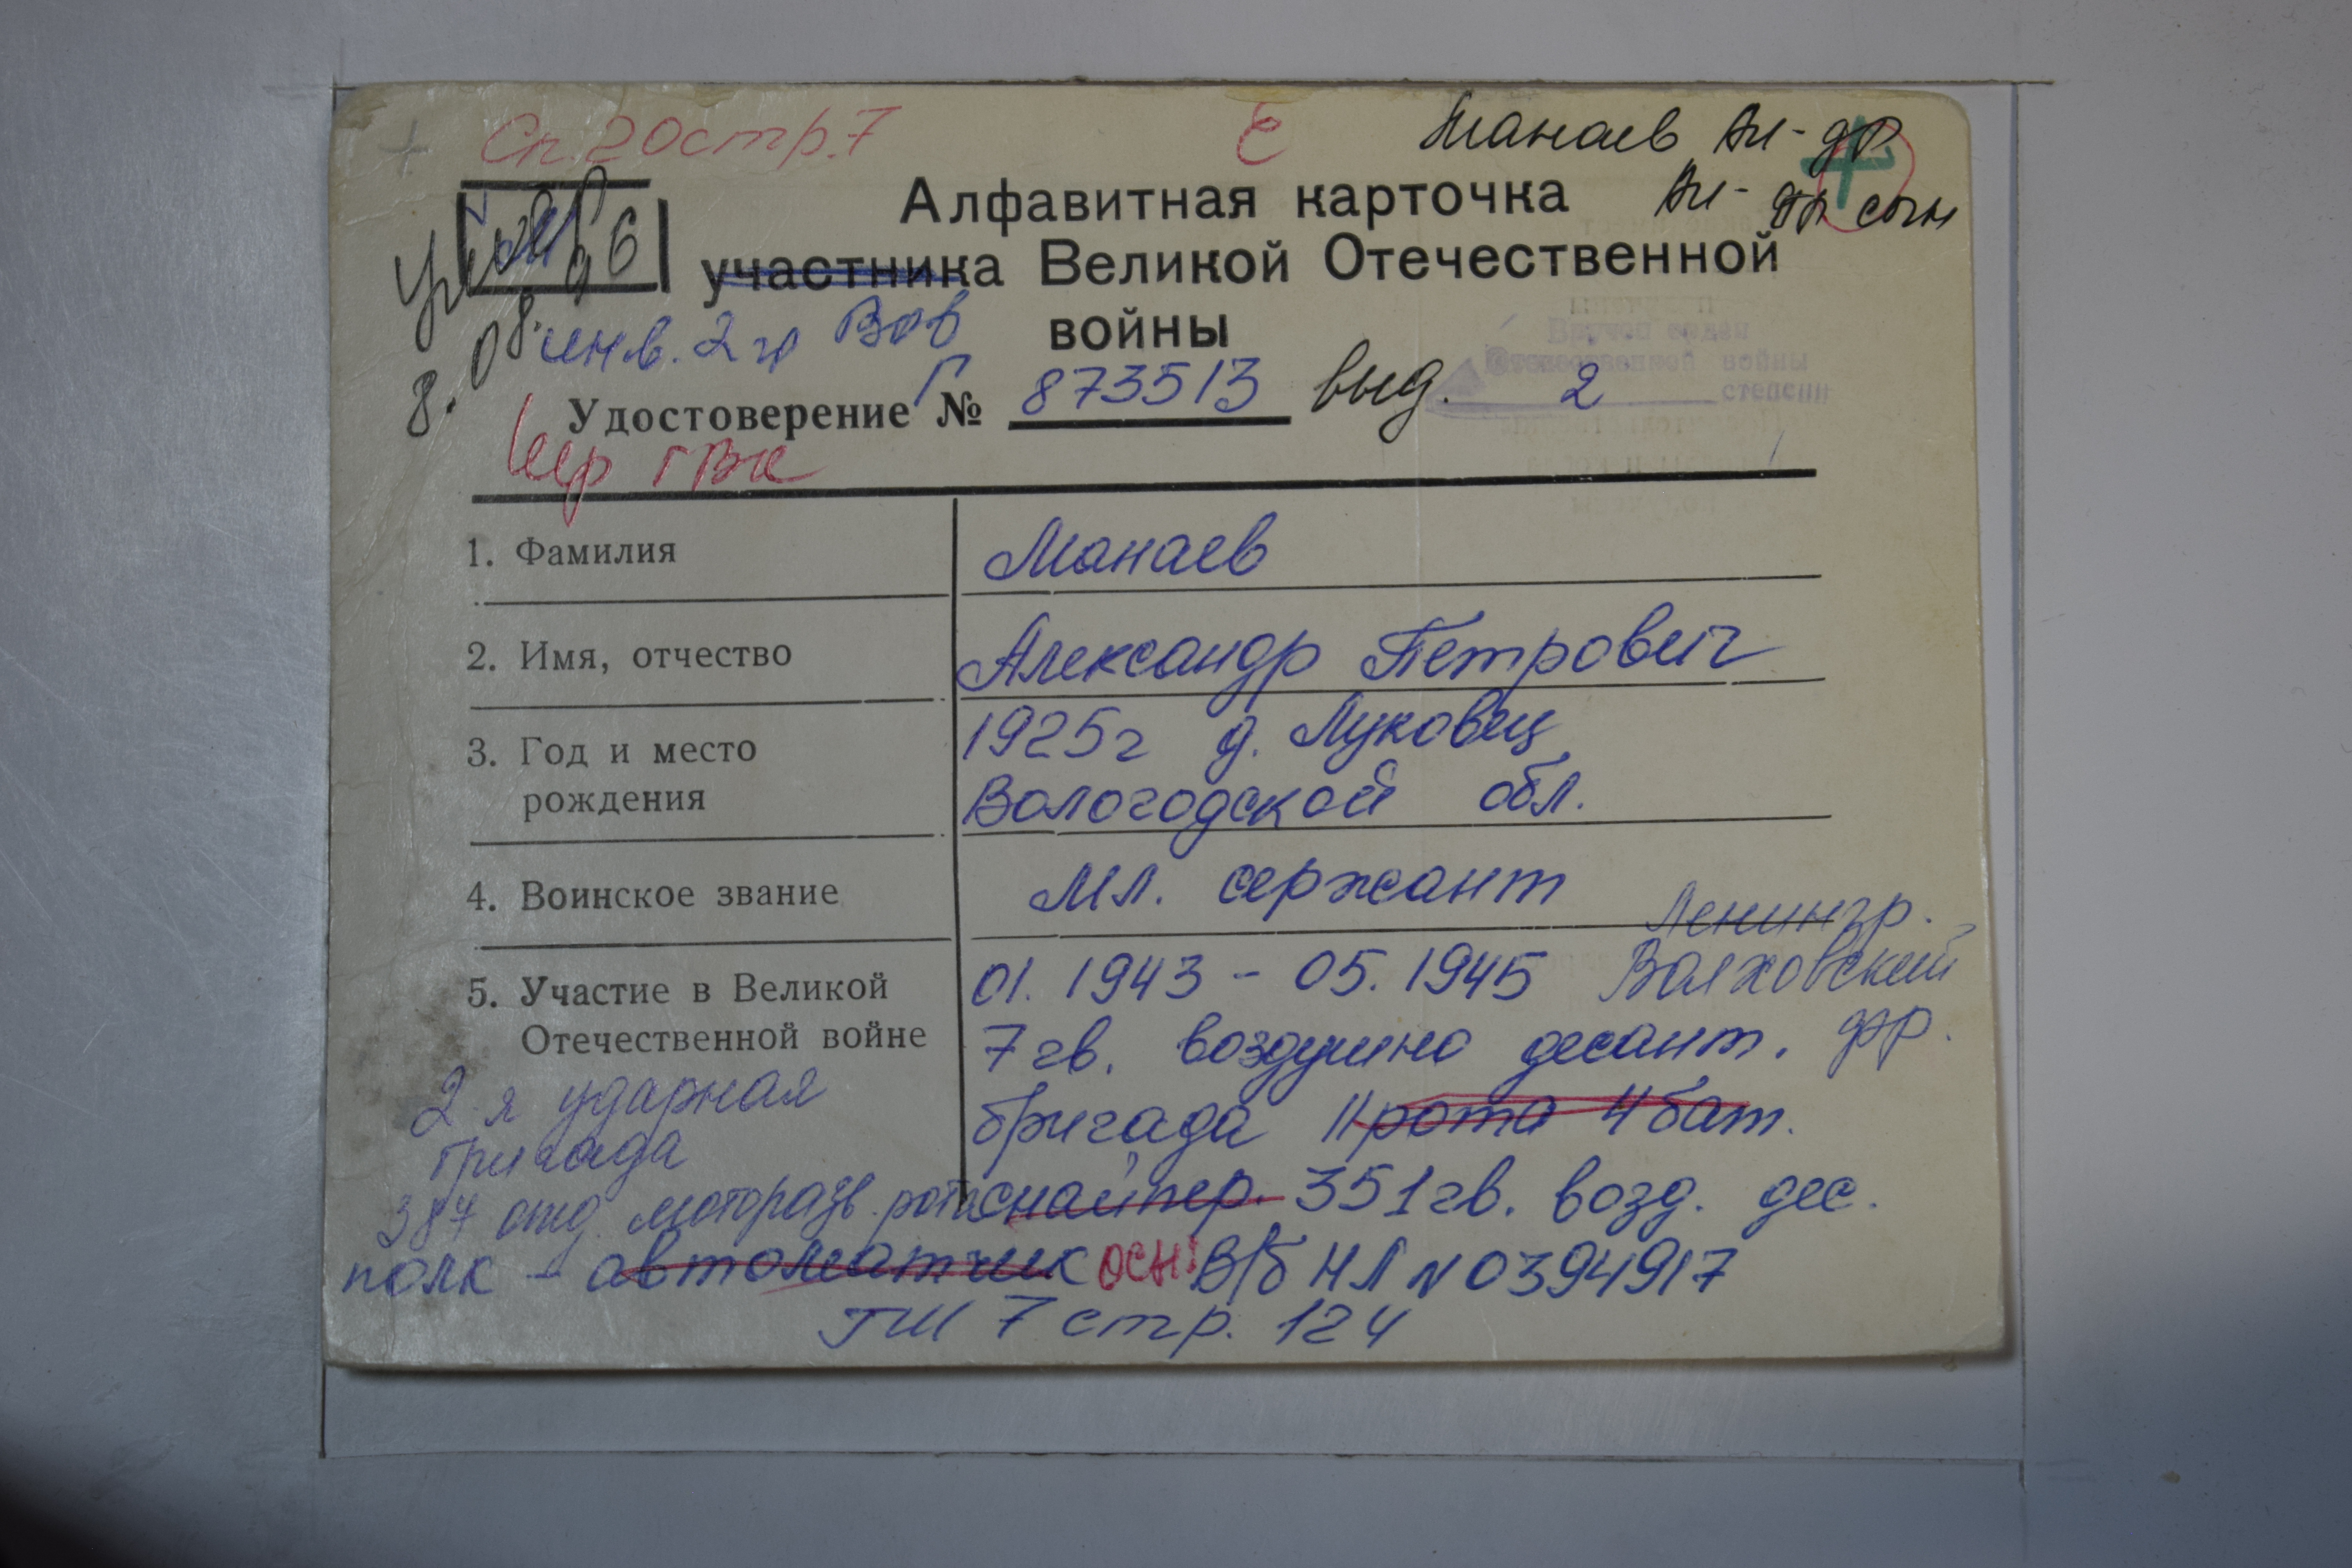 Сп. 20 стр. 7
Манаев Ал-др
Ал-др сын
Алфавитная карточка
участника Великой Отечественной
войны
8.08.96
инв. 2 гр ВОВ
Вручен орден
Отечественной войны
2 степени
Удостоверение Г № 873513 выд.
Кир ГВК
1. Фамилия Манаев
2. Имя, отчество Александр Петрович
3. Год и место рождения 1925г д. Луковец
Вологодской обл.
4. Воинское звание мл. сержант
5. Участие в Великой Отечественной войне
Ленингр.
01.1943 - 05.1945 Волховский
7 гв. воздушно десант. фр.
бригада 11 рота 4 бат.
2-я ударная
бригада
387 отд. моторазв. рота снайпер. 351 гв. возд. дес.
полк - автоматчик осн: В/б НЛ N 0394917
ГШ 7 стр. 124